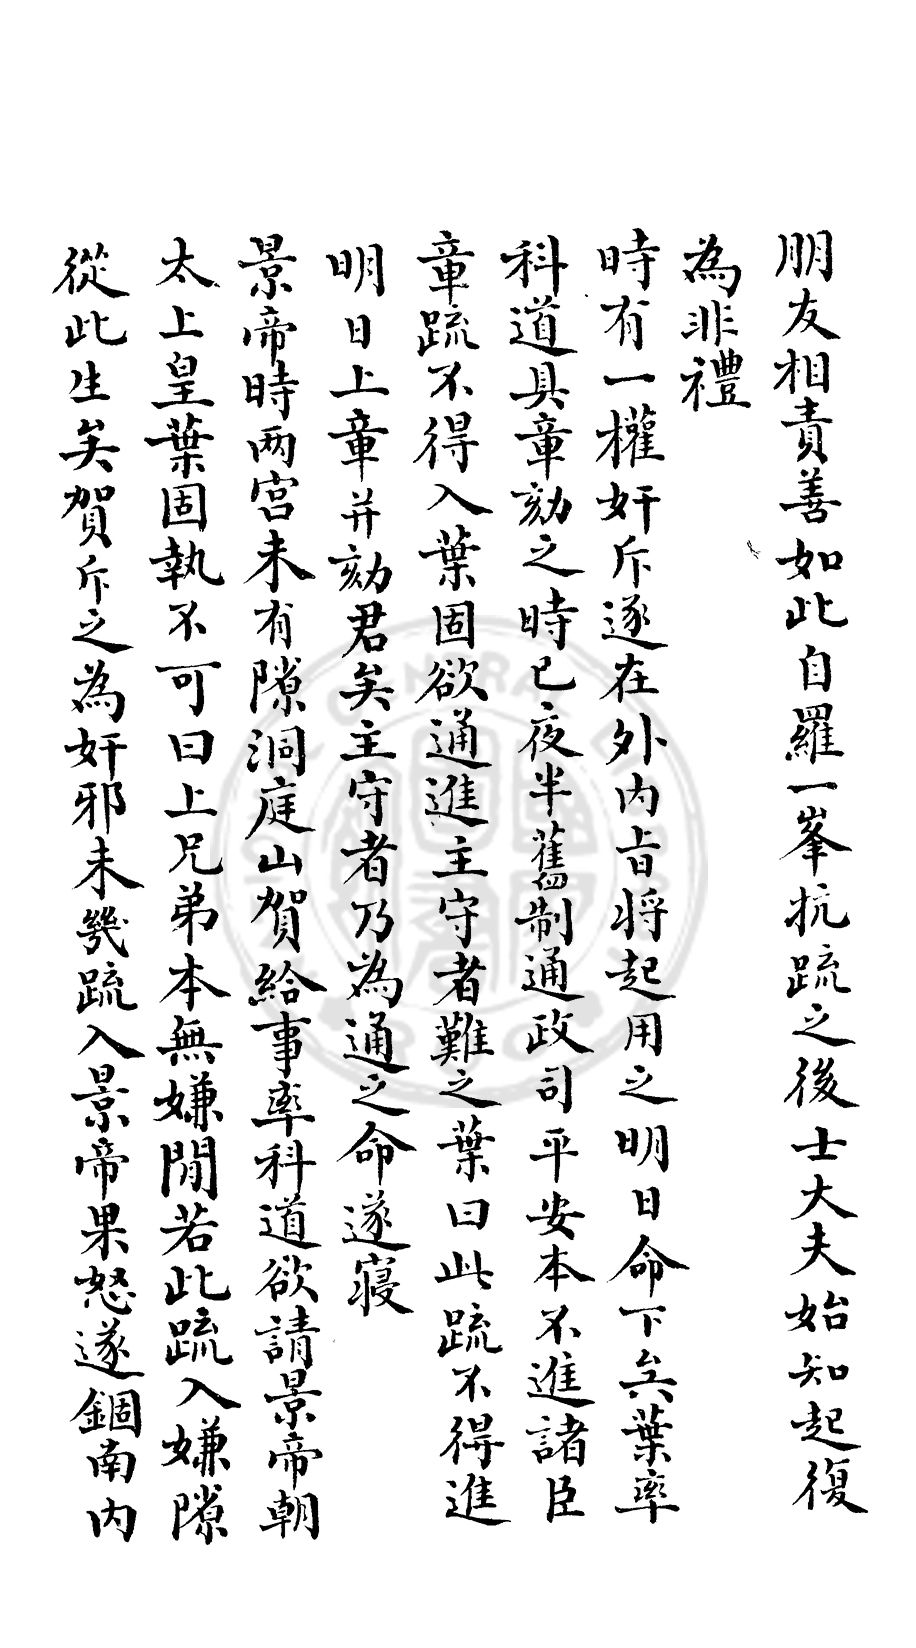 朋友相責善如此自羅一峯抗疏之後士大夫始知起復
為非禮
時有一權奸斥逐在外內旨將起用之明日命下矣葉率
科道具章劾之時已夜半舊制通政司平安本不進諸臣
章疏不得入葉固欲通進主守者難之葉曰此疏不得進
明日上章并劾君矣主守者乃為通之命遂寢
景帝時两宮未有隙洞庭山賀給事率科道欲請景帝朝
太上皇葉固執不可曰上兄弟本無嫌閒若此疏入嫌隙
從此生矣賀斥之為奸邪未幾疏入景帝果怒遂錮南內